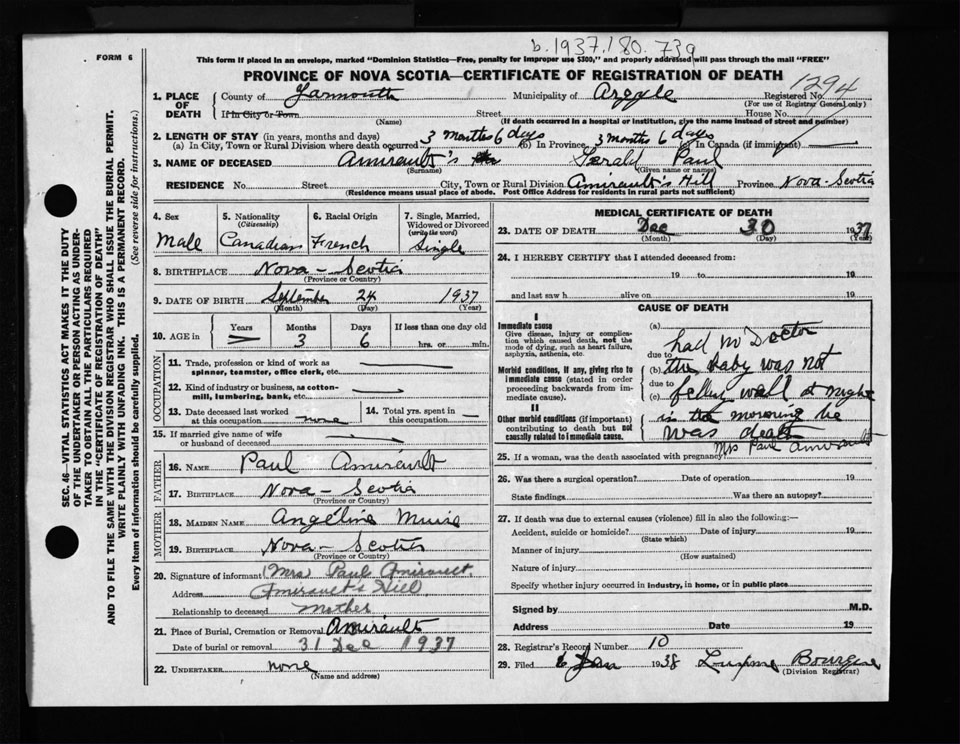 b.1937.180.739
FORM 6
This form if placed in an envelope, marked "Dominion Statistics—Free, penalty for improper use $300," and properly addressed will pass through the mail "FREE"
PROVINCE OF NOVA SCOTIA—CERTIFICATE OF REGISTRATION OF DEATH
1294
1. PLACE OF DEATH
County of Yarmouth Municipality of Argyle Registered No.
(For use of Registrar General only)
If in City or Town Street House No.
(Name) (If death occurred in a hospital or institution, give the name instead of street and number)
2. LENGTH OF STAY (in years, months and days)
(a) In City, Town or Rural Division where death occurred 3 months 6 days (b) In Province 3 months 6 days (c) In Canada (if immigrant)
3. NAME OF DECEASED Amirault's Gerald Paul
(Surname) (Given name or names)
RESIDENCE No. Street City, Town or Rural Division Amirault's Hill Province Nova-Scotia
(Residence means usual place of abode. Post Office Address for residents in rural parts not sufficient)
4. Sex
Male
5. Nationality
(Citizenship)
Canadian
6. Racial Origin
French
7. Single, Married, Widowed or Divorced
(write the word)
Single
8. BIRTHPLACE Nova-Scotia
(Province or Country)
9. DATE OF BIRTH September 24 1937
(Month) (Day) (Year)
10. AGE in
Years Months Days If less than one day old
3 6 hrs. or min.
OCCUPATION
11. Trade, profession or kind of work as spinner, teamster, office clerk, etc.
12. Kind of industry or business, as cotton-mill, lumbering, bank, etc.
13. Date deceased last worked at this occupation none
14. Total yrs. spent in this occupation
15. If married give name of wife or husband of deceased
FATHER
16. NAME Paul Amirault
17. BIRTHPLACE Nova-Scotia
(Province or Country)
MOTHER
18. MAIDEN NAME Angeline Muise
19. BIRTHPLACE Nova-Scotia
(Province or Country)
20. Signature of informant (Mrs) Paul Amirault
Address Amirault's Hill
Relationship to deceased Mother
21. Place of Burial, Cremation or Removal Amirault
Date of burial or removal 31 Dec 1937
22. UNDERTAKER none
(Name and Address)
MEDICAL CERTIFICATE OF DEATH
23. DATE OF DEATH Dec 30 1937
(Month) (Day) (Year)
24. I HEREBY CERTIFY that I attended deceased from:
19 to 19
and last saw h alive on 19
CAUSE OF DEATH
I
Immediate cause
Give disease, injury or complication which caused death, not the mode of dying, such as heart failure, asphyxia, asthenia, etc.
Morbid conditions, if any, giving rise to immediate cause (stated in order proceeding backwards from immediate cause).
II
Other morbid conditions (if important) contributing to death but not causally related to immediate cause.
(a) had no Doctor
due to
(b) the baby was not
due to
(c) felling well at night
in the morning he
was death
Mrs Paul Amirault
25. If a woman, was the death associated with pregnancy?
26. Was there a surgical operation? Date of operation 19
State findings Was there an autopsy?
27. If death was due to external causes (violence) fill in also the following:—
Accident, suicide or homicide? Date of injury 19
(State which)
Manner of injury
(How sustained)
Nature of injury
Specify whether injury occurred in industry, in home, or in public place
Signed by M.D.
Address Date 19
28. Registrar's Record Number 10
29. Filed 6 Jan 1938 Bourque
(Division Registrar)
SEC. 46—VITAL STATISTICS ACT MAKES IT THE DUTY
OF THE UNDERTAKER OR PERSON ACTING AS UNDER-
TAKER TO OBTAIN ALL THE PARTICULARS REQUIRED
IN THE "CERTIFICATE OF REGISTRATION OF DEATH"
AND TO FILE THE SAME WITH THE DIVISION REGISTRAR WHO SHALL ISSUE THE BURIAL PERMIT.
WRITE PLAINLY WITH UNFADING INK. THIS IS A PERMANENT RECORD.
Every item of information should be carefully supplied. (See reverse side for instructions.)